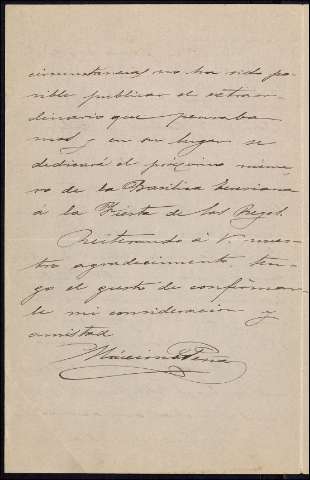 circunstancias, no ha sido po-
sible publicar el extraor-
dinario que pensaba
mos y en su lugar se
dedicará el próximo núme-
ro de la
á la Fiesta de las Reyes.
Reiterando á V. nues-
tro agradecimiento, ten-
go el gusto de confirmar-
le mi consideración y
amistad